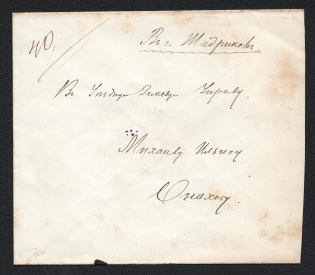 40.
Въ г. Шадринскъ
Въ Уѣздную Земскую Управу.
Михаилу Ильичу